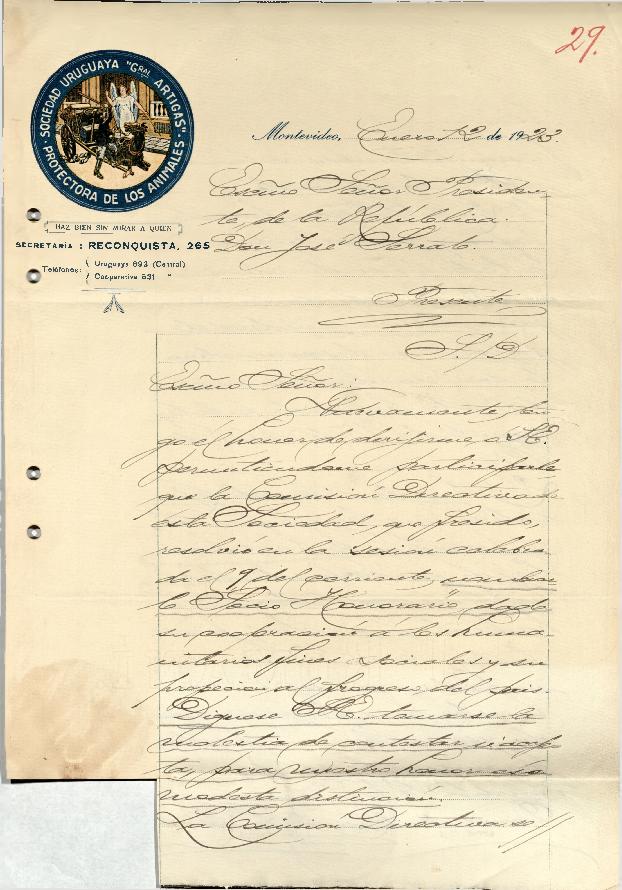 29.
SOCIEDAD URUGUAYA "Gral ARTIGAS"
PROTECTORA DE LOS ANIMALES
HAZ BIEN SIN MIRAR A QUIEN
SECRETARÍA : RECONQUISTA, 265
Teléfonos: Uruguaya 893 (Central)
Cooperativa 531 "
Montevideo, Enero 12 de 1923.
Exémo Señor Presiden-
te, de la República.
Don José Serrato.
Presente
S./D
Exémo Señor:
Nuevamente ten-
go el honor de dirijirme a S.E.
permitiendome participarle
que la Comisión Directiva de
esta Sociedad, que presido,
resolvió en la sesión celebra-
da el 9 del corriente, nombrar
le Socio "Honorario" dado
su cooperación á los huma-
nitarios fines sociales y su
propección al progreso del pais.
Dignese S.E. tomarse la
molestia de contestar si acep-
ta, para nuestro honor esa
modesta distinción.
La Comision Directiva se //